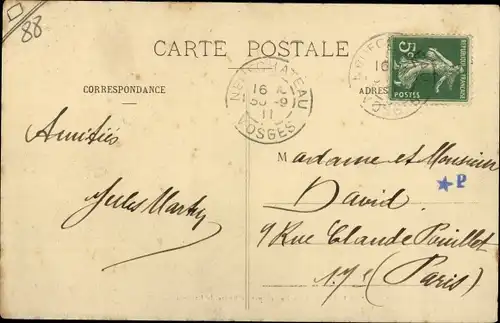 88
CARTE POSTALE
CORRESPONDANCE
NEUFCHATEAU
16
30-9
11
VOSGES
5c
POSTES
REPUBLIQUE FRANÇAISE
16
ADRES
Amitiés
Jules
Madame et Monsieur
David.
★P
9 Rue Claude Pouillet
17e (Paris)